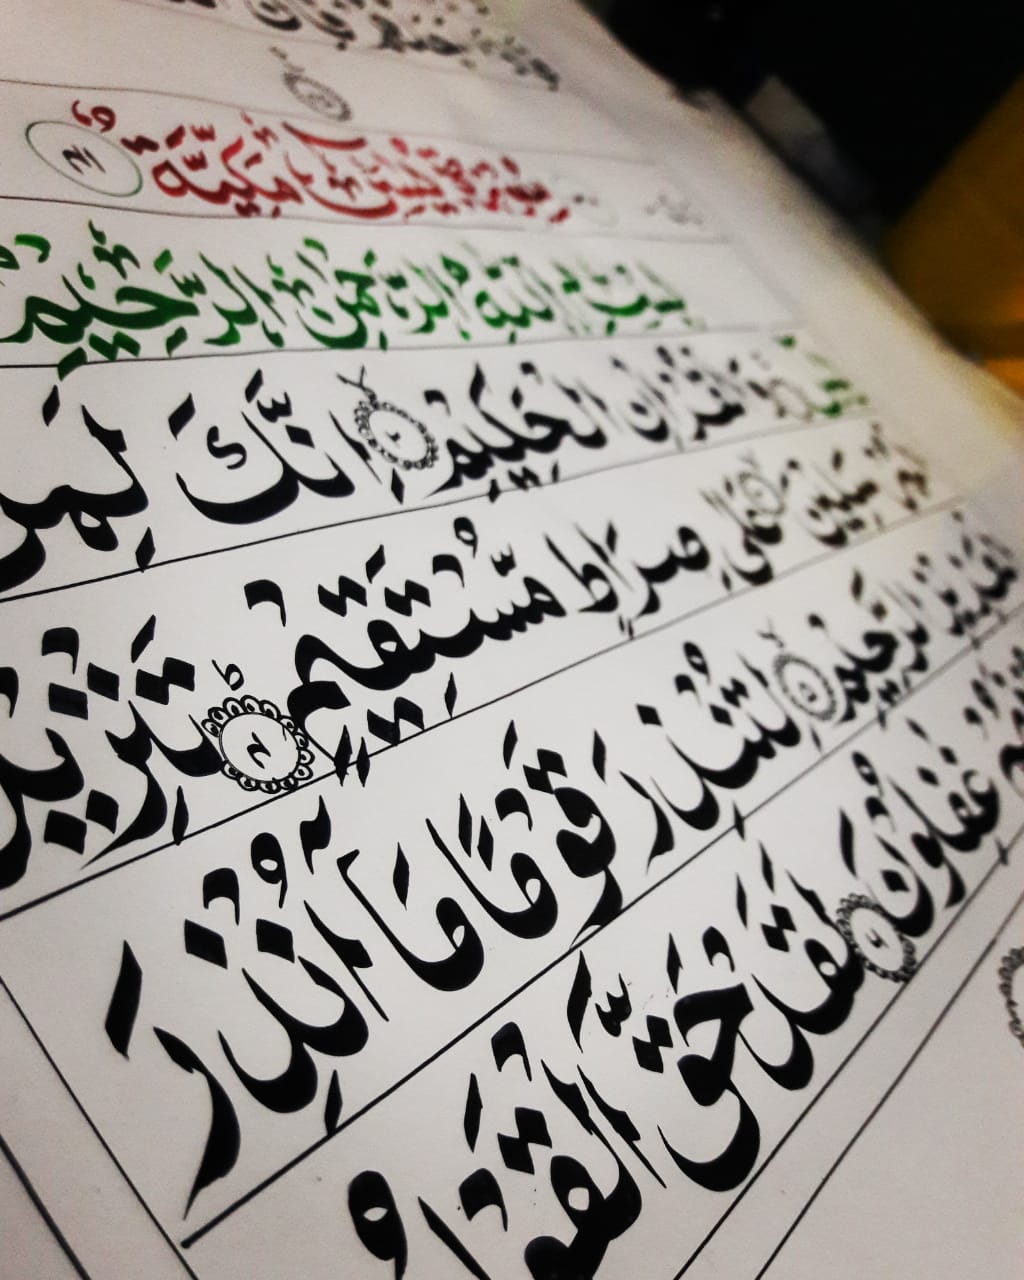 سُوْرَةُ يٰسٓ مَكِّيَّةٌ
بِسْمِ اللّٰهِ الرَّحْمٰنِ الرَّحِيْمِ
يٰسٓ وَالْقُرْاٰنِ الْحَكِيْمِ ٢ اِنَّكَ لَمِنَ
الْمُرْسَلِيْنَ عَلٰى صِرَاطٍ مُّسْتَقِيْمٍ ٤ تَنْزِيْلَ
الْعَزِيْزِ الرَّحِيْمِ ٥ لِتُنْذِرَ قَوْمًا مَّآ اُنْذِرَ
فَهُمْ غٰفِلُوْنَ ٦ لَقَدْ حَقَّ الْقَوْلُ